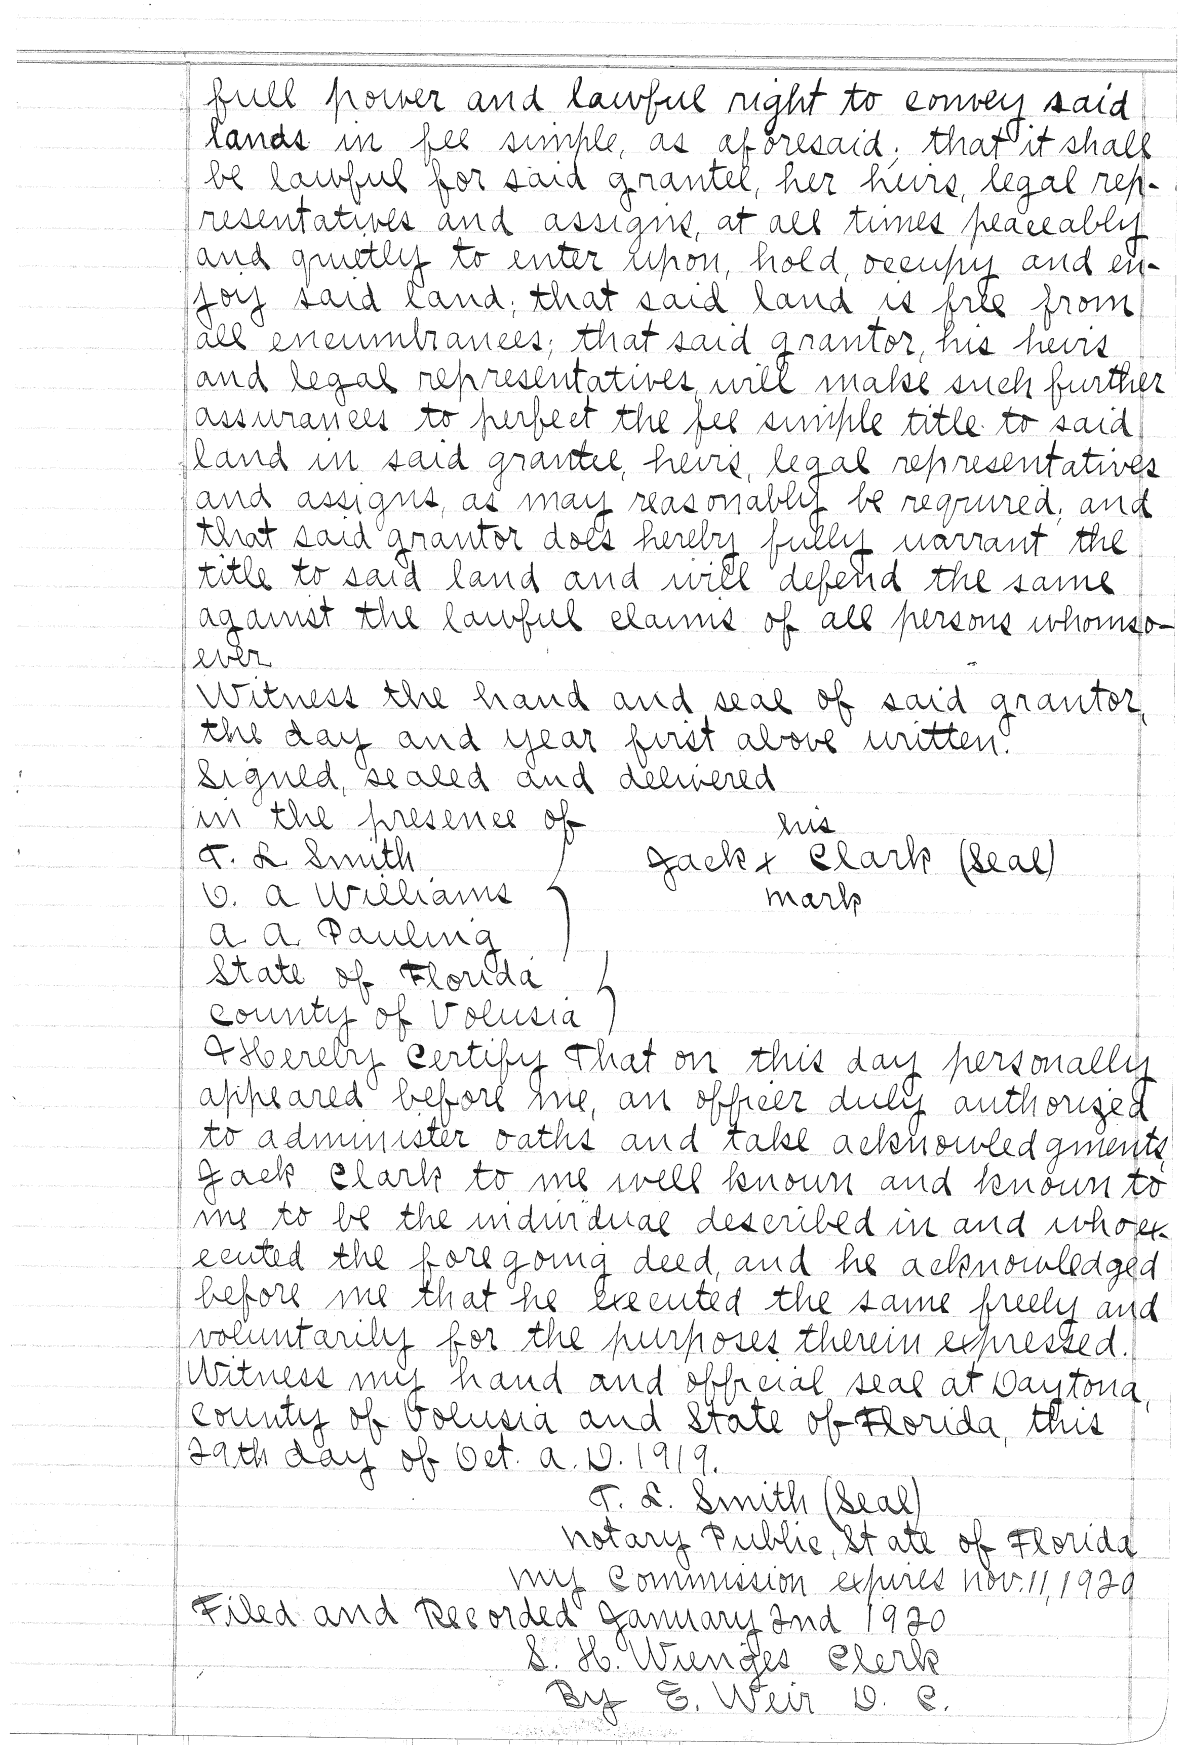 full power and lawful right to convey said
lands in fee simple, as aforesaid; that it shall
be lawful for said grantee, her heirs, legal rep-
resentatives and assigns, at all times peaceably
and quietly to enter upon, hold, occupy and en-
joy said land; that said land is free from
all encumbrances; that said grantor, his heirs
and legal representatives, will make such further
assurances to perfect the fee simple title to said
land in said grantee, heirs, legal representatives
and assigns, as may reasonably be required; and
that said grantor does hereby fully warrant the
title to said land and will defend the same
against the lawful claims of all persons whomso-
ever.
Witness the hand and seal of said grantor,
the day and year first above written.
Signed, sealed and delivered
in the presence of
his
T. L. Smith Jack x Clark (Seal)
D. A Williams mark
A. A. Pauling
State of Florida
County of Volusia
I Hereby Certify That on this day personally
appeared before me, an officer duly authorized
to administer oaths and take acknowledgments,
Jack Clark to me well known and known to
me to be the individual described in and who ex-
ecuted the foregoing deed, and he acknowledged
before me that he executed the same freely and
voluntarily for the purposes therein expressed.
Witness my hand and official seal at Daytona,
County of Volusia and State of Florida, this
29th day of Oct. A. D. 1919.
T. L. Smith (Seal)
Notary Public, State of Florida
My Commission expires Nov. 11, 1920
Filed and Recorded January 2nd 1920
S. H. Wienges Clerk
By E. Weir D. C.